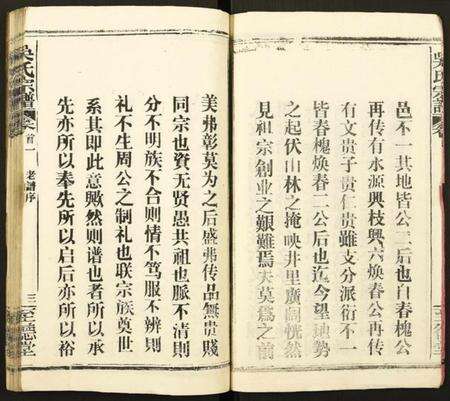 邑不一其地皆公三后也自春槐公
再传有水源興枝興六煥春公再传
有文贵子贵仁贵雖支分派衍不一
皆春槐煥春二公后也迄今望地勢
之起伏山林之掩映井里廣阔恍然
見祖宗創业之艱難焉夫莫為之前
美弗彰莫为之后盛弗传品無贵賤
同宗也資无贤愚其祖也脈不清則
分不明族不合則情不笃服不辨則
礼不生周公之制礼也联宗族奠世
系其即此意歟然则谱也者所以承
先亦所以奉先所以启后亦所以裕
吳氏宗譜
卷首
老譜序
三
至德堂